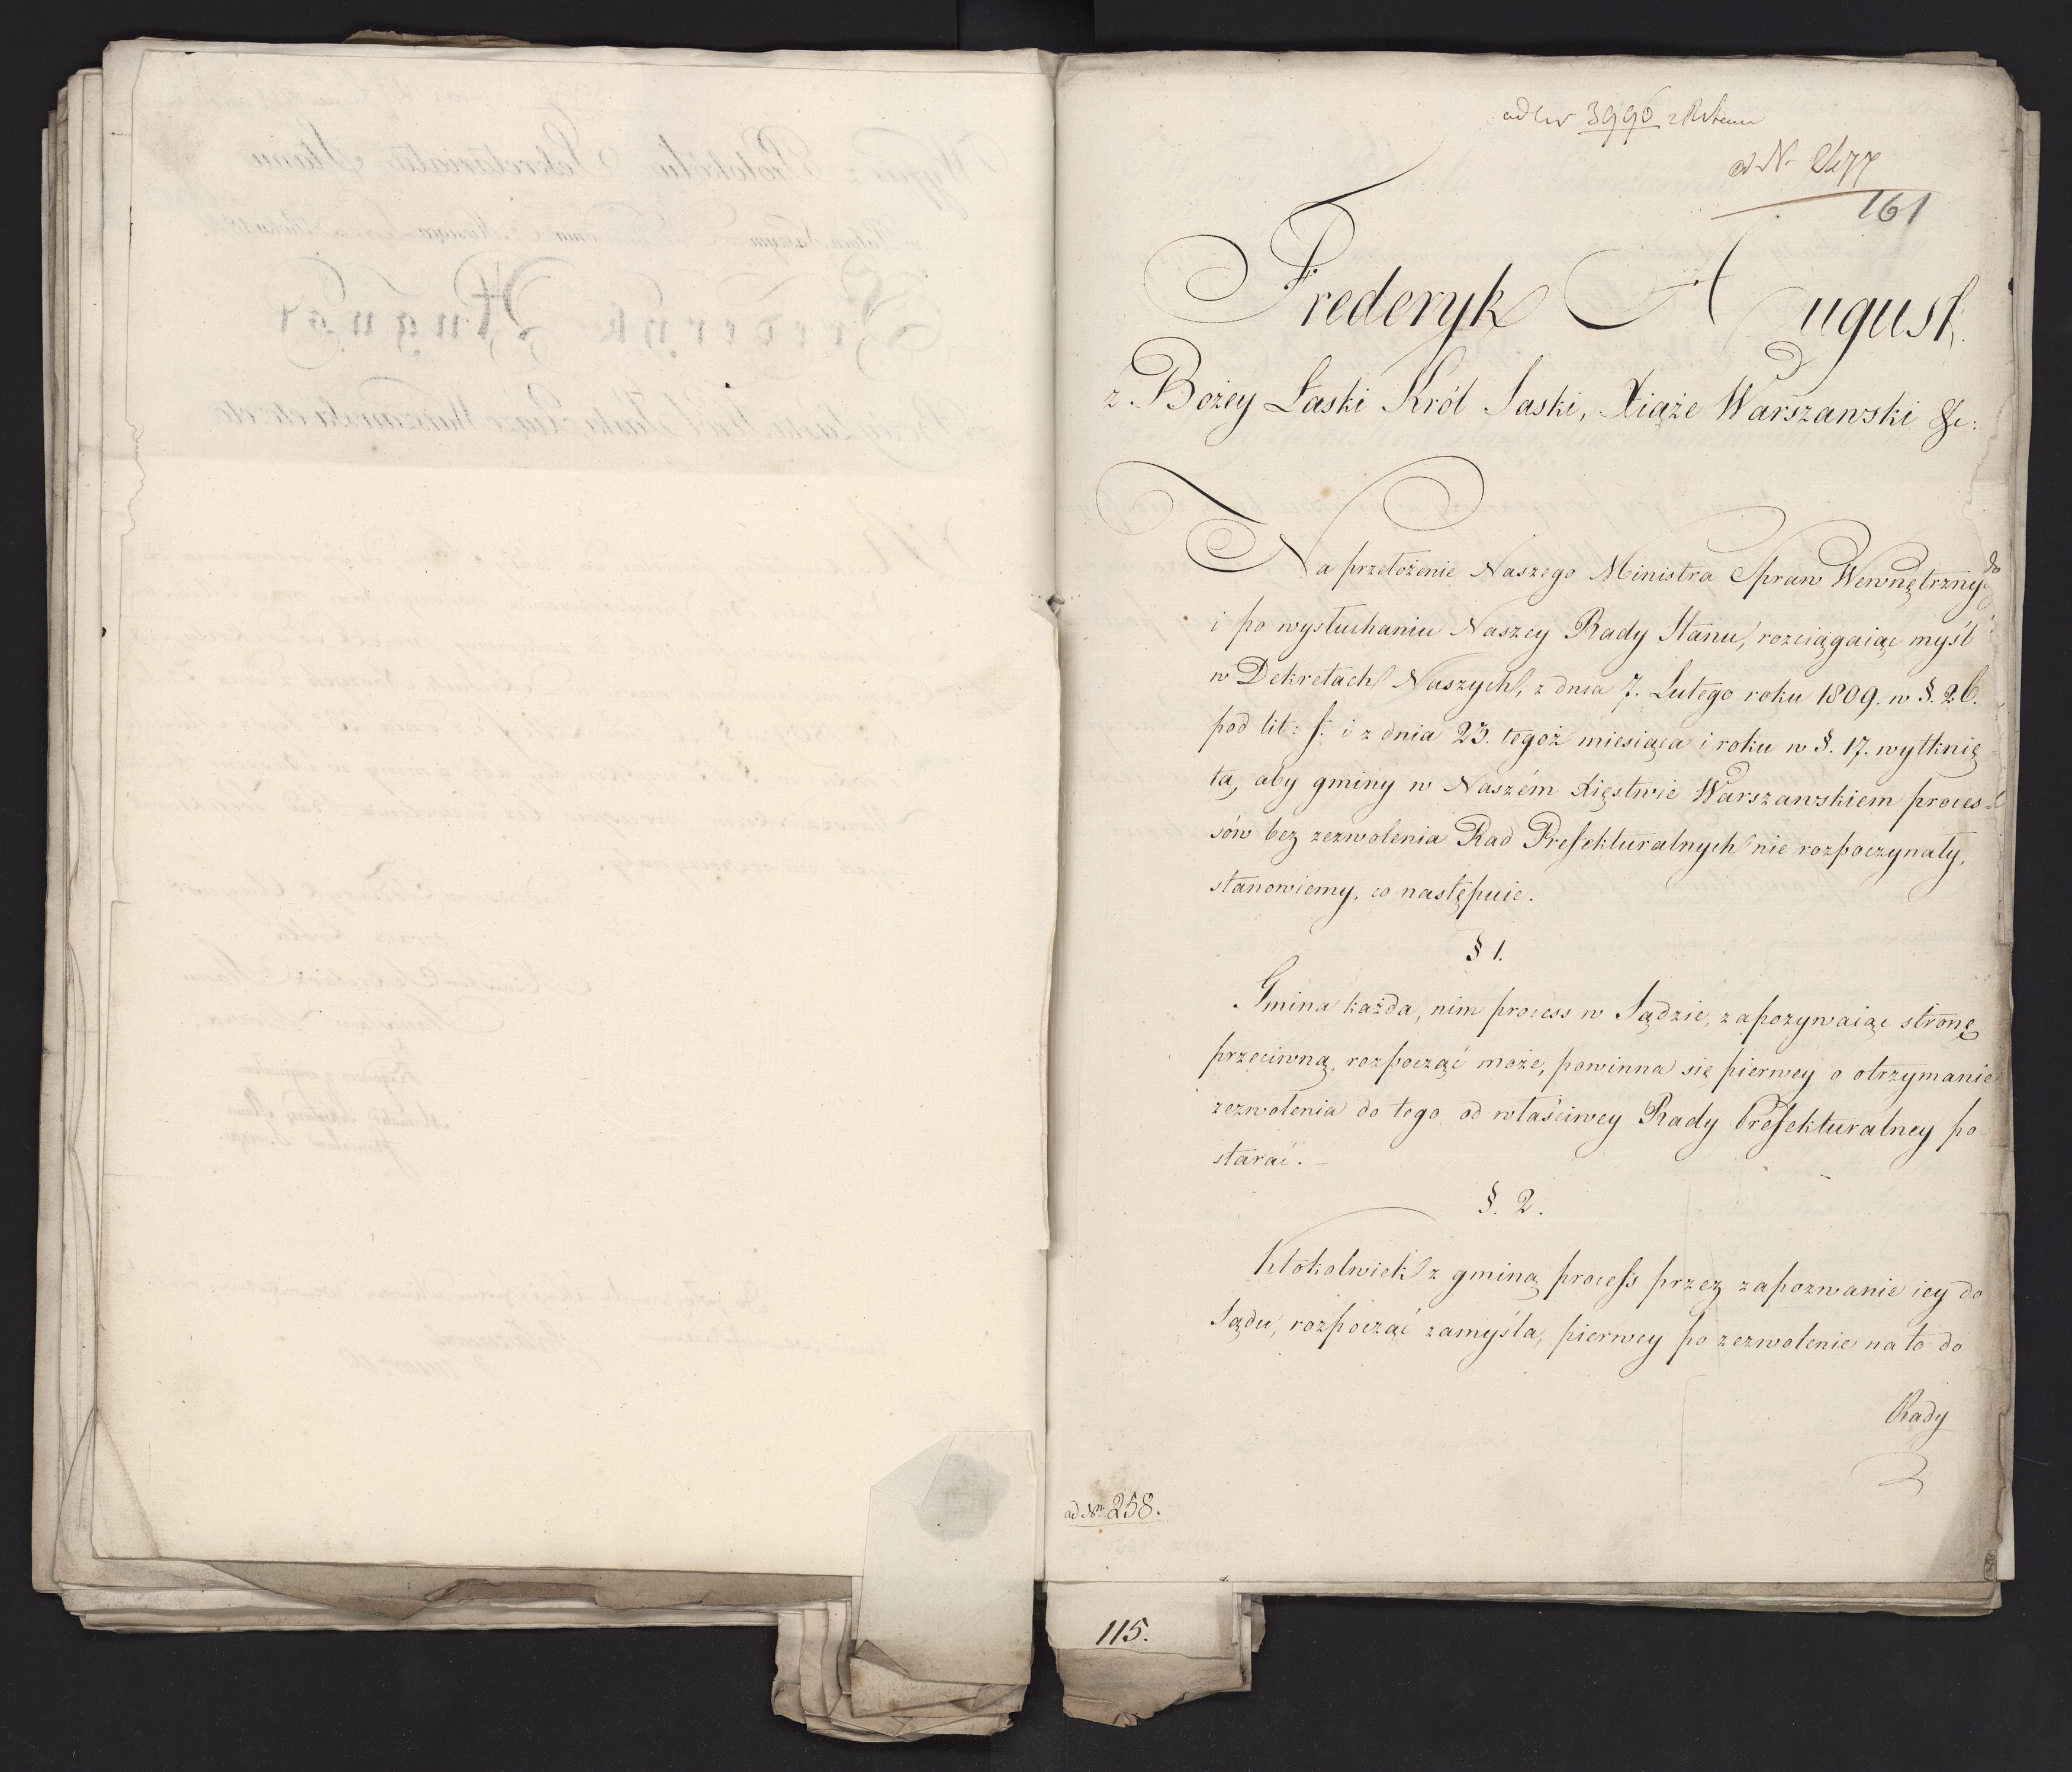 3996
ad N. 2477
161
Frederyk August.
z Bożey Łaski Król Saski, Xiąże Warszawski &c:
Na przełożenie Naszego Ministra Spraw Wewnętrznych
i po wysłuchaniu Naszey Rady Stanu, rozciągaiąc myśl
w Dekretach Naszych, z dnia 7. Lutego roku 1809. w §. 26.
pod lit: f. i z dnia 23. tegoż miesiąca i roku w §. 17. wytknię
tą, aby gminy w Naszém Xięstwie Warszawskiem proces-
sów bez zezwolenia Rad Prefekturalnych nie rozpoczynały,
stanowiemy, co następuie.
§ 1.
Gmina każda, nim process w Sądzie, zapozywaiąc stronę
przeciwną, rozpocząć może, powinna się pierwey o otrzymanie
zezwolenia do tego od właściwey Rady Prefekturalney po
starać. –
§. 2.
Ktokolwiek z gminą process przez zapozwanie iey do
Sądu, rozpocząć zamyśla, pierwey po zezwolenie na to do
Rady
ad Nr. 258.
115.